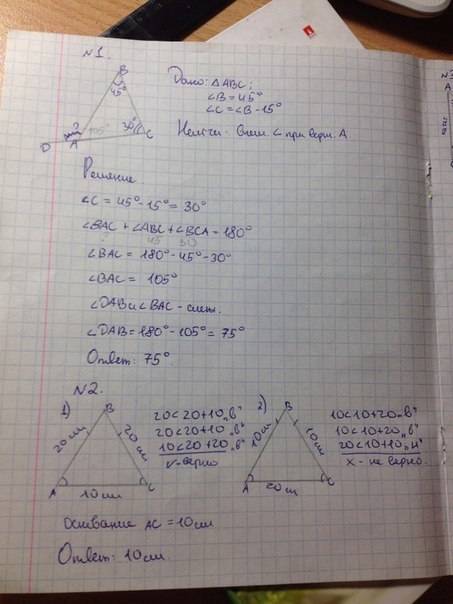 №1.
B
45°
?
105°
30°
D
A
C
Дано: △ABC;
∠B = 45°
∠C = ∠B - 15°
Найти: Внеш. ∠ при верш. A
Решение
∠C = 45° - 15° = 30°
∠BAC + ∠ABC + ∠BCA = 180°
? 45 30
∠BAC = 180° - 45° - 30°
∠BAC = 105°
∠DAB и ∠BAC - смеж.
∠DAB = 180° - 105° = 75°
Ответ: 75°
№2.
1)
B
20см
20см
A
C
10см
20<20+10 „в"
20<20+10 „в"
10<20+20 „в"
v - верно
2)
B
10см
10см
A
C
20см
10<10+20 „в"
10<10+20 „в"
20<10+10 „н"
x - не верно.
Основание AC = 10см
Ответ: 10см